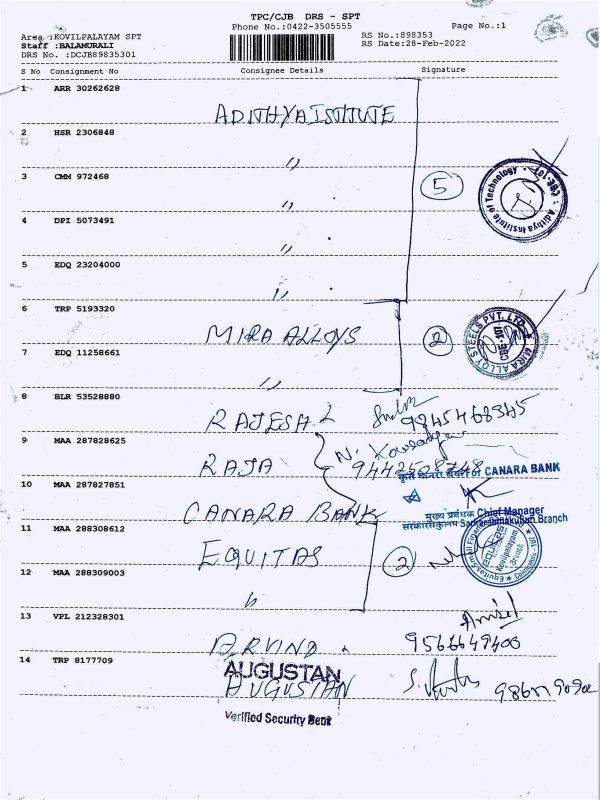 TPC/CJB DRS - SPT
Phone No.:0422-3505555
Page No.:1
Area :KOVILPALAYAM SPT
Staff :BALAMURALI
DRS No. :DCJB89835301
RS No.:898353
RS Date:28-Feb-2022
S No Consignment No Consignee Details Signature
1 ARR 30262628
ADITHYA ISTITUTE
2 HSR 2306848
"
3 CMM 972468
"
5
Adithya Institute of Technology
4 DPI 5073491
"
5 EDQ 23204000
"
6 TRP 5193320
MIRA ALLOYS
2
MIRA ALLOY STEELS PVT. LTD.
7 EDQ 11258661
"
8 BLR 53528880
RAJESH
9845468345
9 MAA 287828625
RAJA
N.
CANARA BANK
10 MAA 287827851
CANARA BANK
मुख्य प्रबंधक Chief Manager
Branch
11 MAA 288308612
EQUITAS
2
EQUITAS
Kovilpalayam
Branch
12 MAA 288309003
"
13 VPL 212328301
ARVIND
9566649400
14 TRP 8177709
AUGUSTAN
AUGUSTIAN
S.
Verified Security Dept